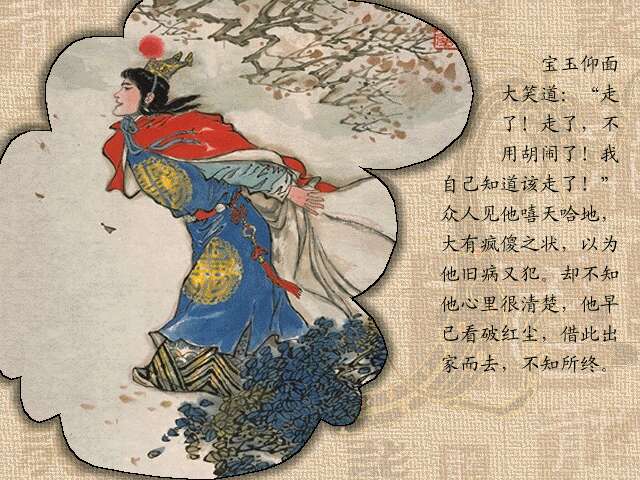 宝玉仰面
大笑道：“走
了！走了，不
用胡闹了！我
自己知道该走了！”
众人见他嘻天哈地，
大有疯傻之状，以为
他旧病又犯。却不知
他心里很清楚，他早
已看破红尘，借此出
家而去，不知所终。